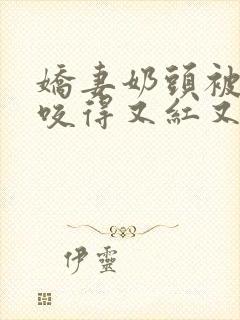 嬌妻奶頭被
咬得又紅又
伊靈